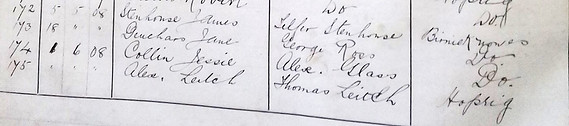 Do Hoprig
172 5 5 08 Stenhouse James Telfer Stenhouse Do
173 18 " " Deuchars Jane George Ross Birnieknowes
174 1 6 08 Collin Jessie Alex. Glass Do
175 " " " Alex. Leitch Thomas Leitch Do.
Hoprig